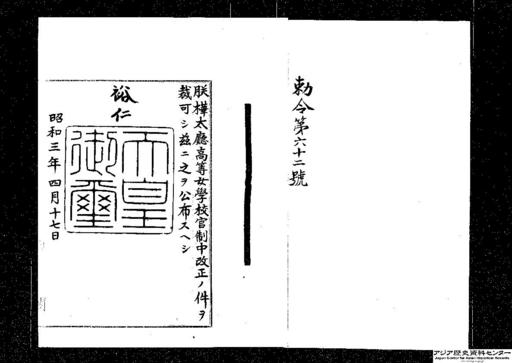 勅令第六十二號
朕樺太廳高等女學校官制中改正ノ件ヲ
裁可シ茲ニ之ヲ公布スヘシ
裕仁
天皇
御璽
昭和三年四月十七日
アジア歴史資料センター
Japan Center for Asian Historical Records